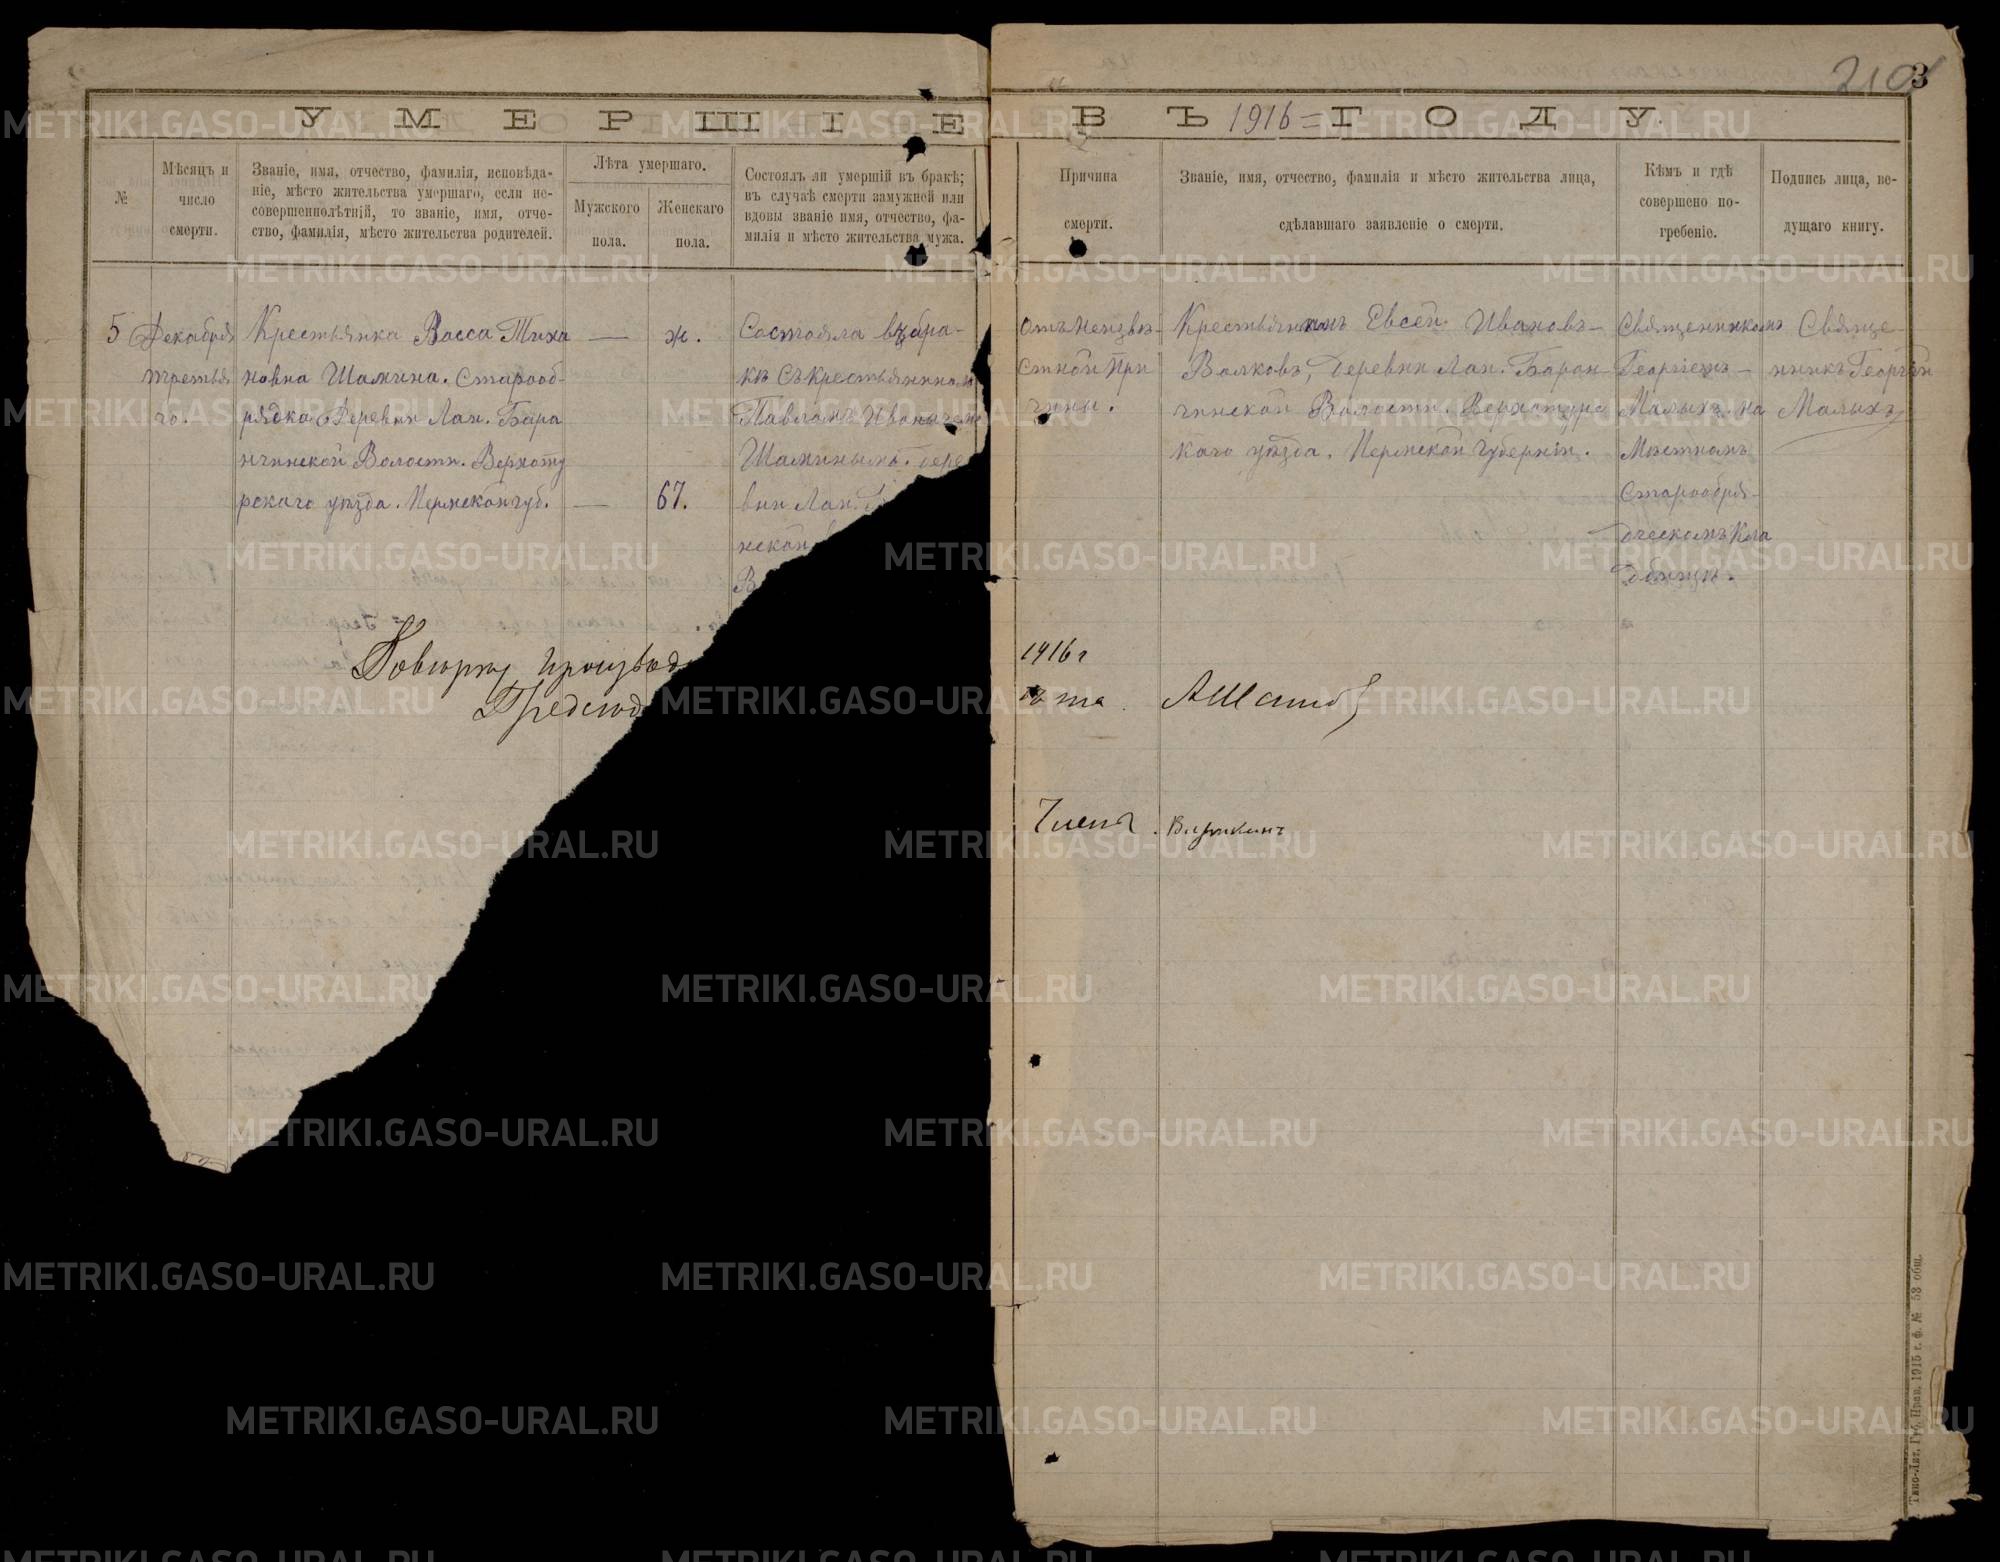 210
3
УМЕРШІЕ ВЪ 1916 = ГОДУ.
№
Мѣсяцъ и
число
смерти.
Званіе, имя, отчество, фамилія, исповѣда-
ніе, мѣсто жительства умершаго, если не-
совершеннолѣтній, то званіе, имя, отче-
ство, фамилія, мѣсто жительства родителей.
Лѣта умершаго.
Мужского
пола.
Женскаго
пола.
Состоялъ ли умершій въ бракѣ;
въ случаѣ смерти замужней или
вдовы званіе имя, отчество, фа-
милія и мѣсто жительства мужа.
Причина
смерти.
Званіе, имя, отчество, фамилія и мѣсто жительства лица,
сдѣлавшаго заявленіе о смерти.
Кѣмъ и гдѣ
совершено по-
гребеніе.
Подпись лица, ве-
дущаго книгу.
5
Декабря
третья
го.
Крестьянка Васса Тиха
новна Шамина. Старооб-
рядка Деревни Лаи. Бара
нчинской Волости. Верхоту
рскаго уѣзда. Пермской губ.
—
—
ж.
67.
Состояла въ бра-
кѣ съ крестьяниномъ
Павломъ Ивановичемъ
Шаминымъ. дере
вни Лаи.
нской
В
Отъ неизвѣ-
стной при
чины.
Крестьянинъ Евсей Ивановъ-
Валковъ, деревни Лаи. Баран-
чинской Волости. Верхотурс
каго уѣзда. Пермской Губерніи.
Священникомъ
Георгіемъ-
Малыхъ. на
Мѣстномъ
Старообря-
дческомъ Кла
дбищѣ.
Священ-
никъ Георгій
Малыхъ
Повѣрку производ
1916 г
Предсѣд
Членъ
Типо-Лит. Губ. Прав. 1915 г. ф. № 53 общ.
METRIKI.GASO-URAL.RU